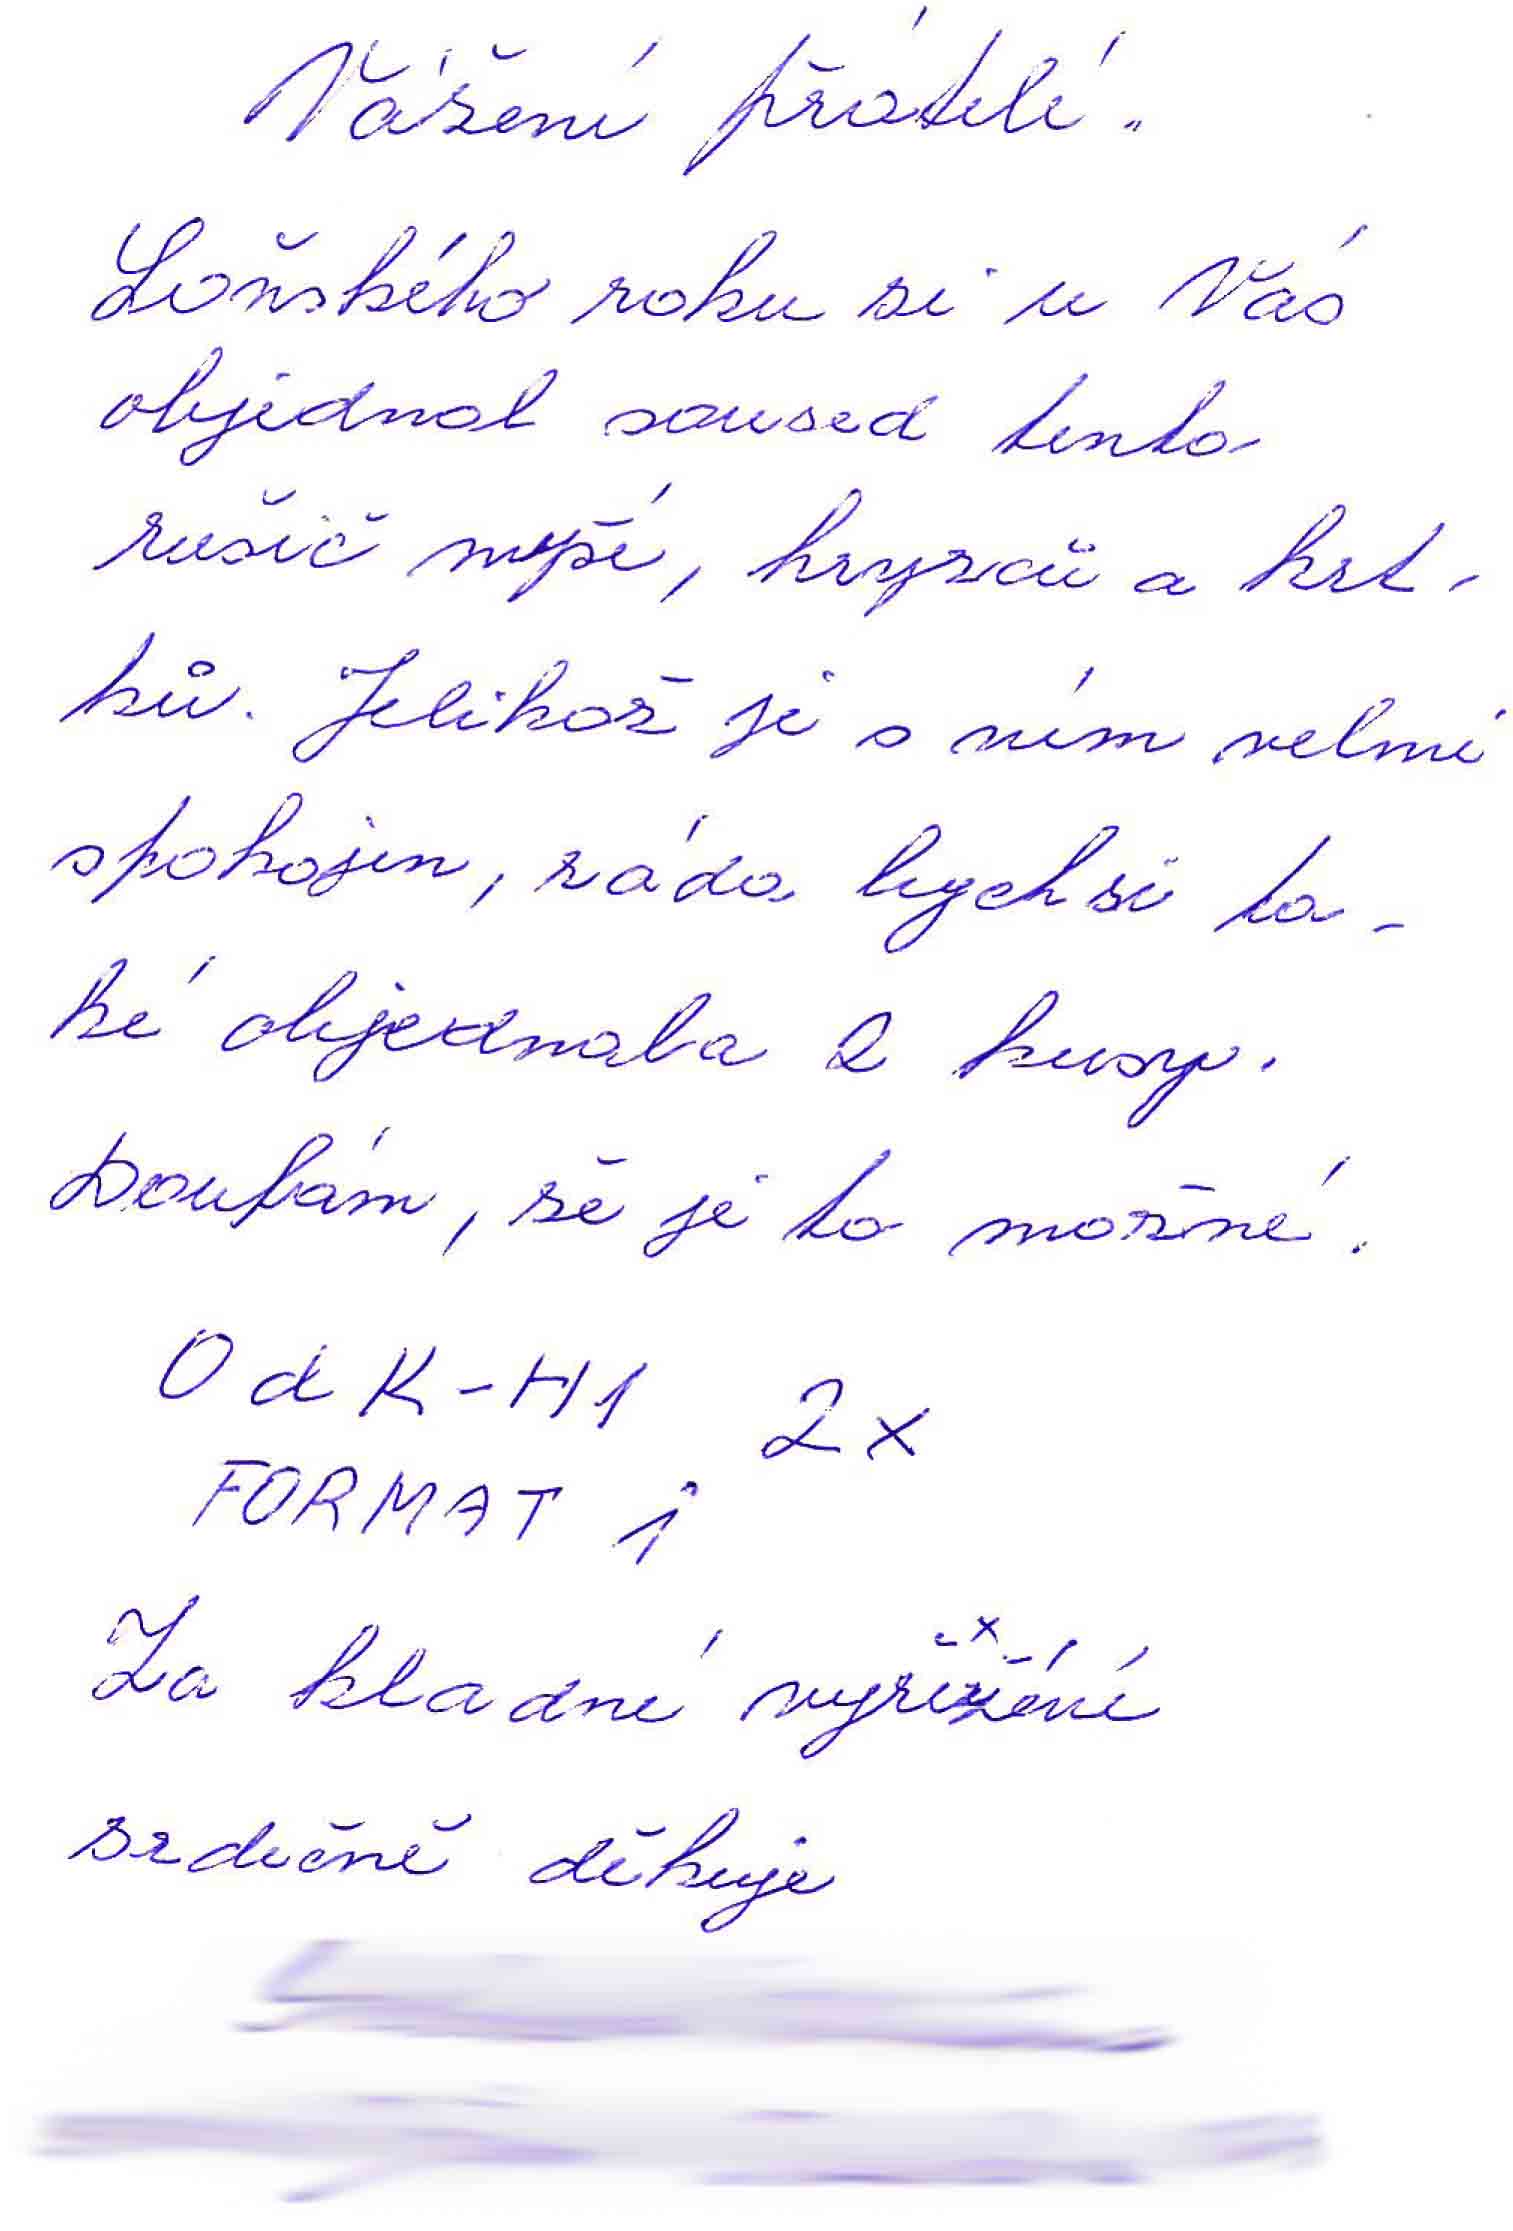 Vážení přátelé.
Loňského roku si u Vás
objednal soused tento
rušič myší, hryzců a krt-
ků. Jelikož je s ním velmi
spokojen, ráda bych si ta-
ké objednala 2 kusy.
Doufám, že je to možné.
OdK-H1 2x
FORMAT 1
Za kladné vyřízení
srdečně děkuje